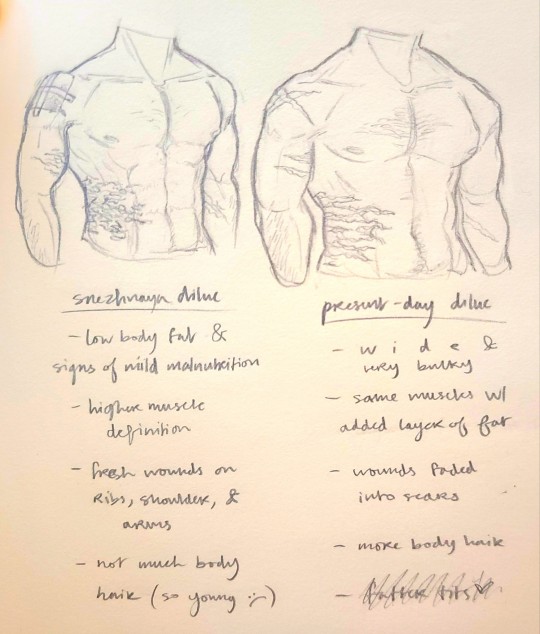 snezhnaya diluc
- low body fat &
signs of mild malnutrition
- higher muscle
definition
- fresh wounds on
ribs, shoulder, &
arms
- not much body
hair (so young :-)
present-day diluc
- w i d e &
very bulky
- same muscles w/
added layer of fat
- wounds faded
into scars
- more body hair
- tits